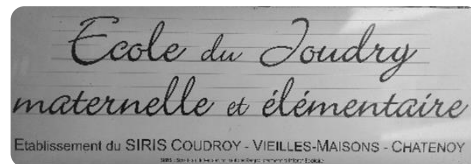 Ecole du Joudry
maternelle et élémentaire
Etablissement du SIRIS COUDROY - VIEILLES-MAISONS - CHATENOY